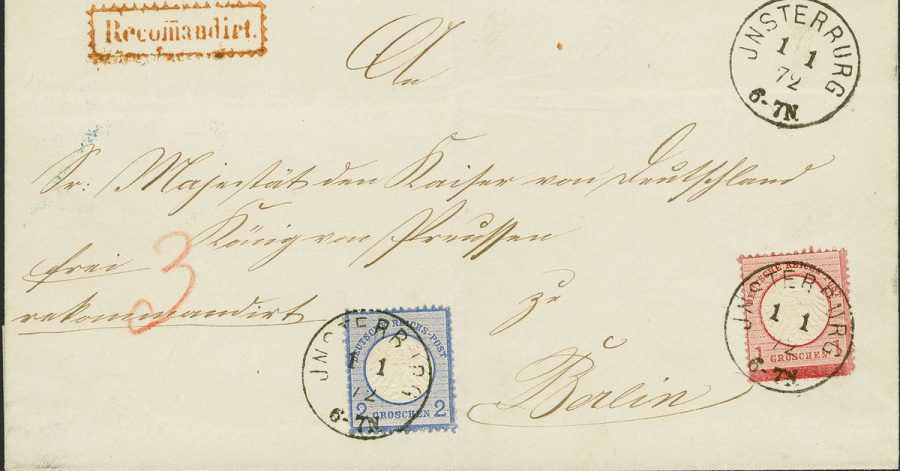 Recom̄andirt.
JNSTERBURG
1 1
72
6-7N.
An
Sr: Majestät den Kaiser von Deutschland
König von Preussen
frei
3
rekommandirt
zu
Berlin
JNSTERBURG
1 1
72
6-7N.
DEUTSCHE REICHS-POST
1 GROSCHEN 1
JNSTERBURG
1 1
72
6-7N.
DEUTSCHE REICHS-POST
2 GROSCHEN 2